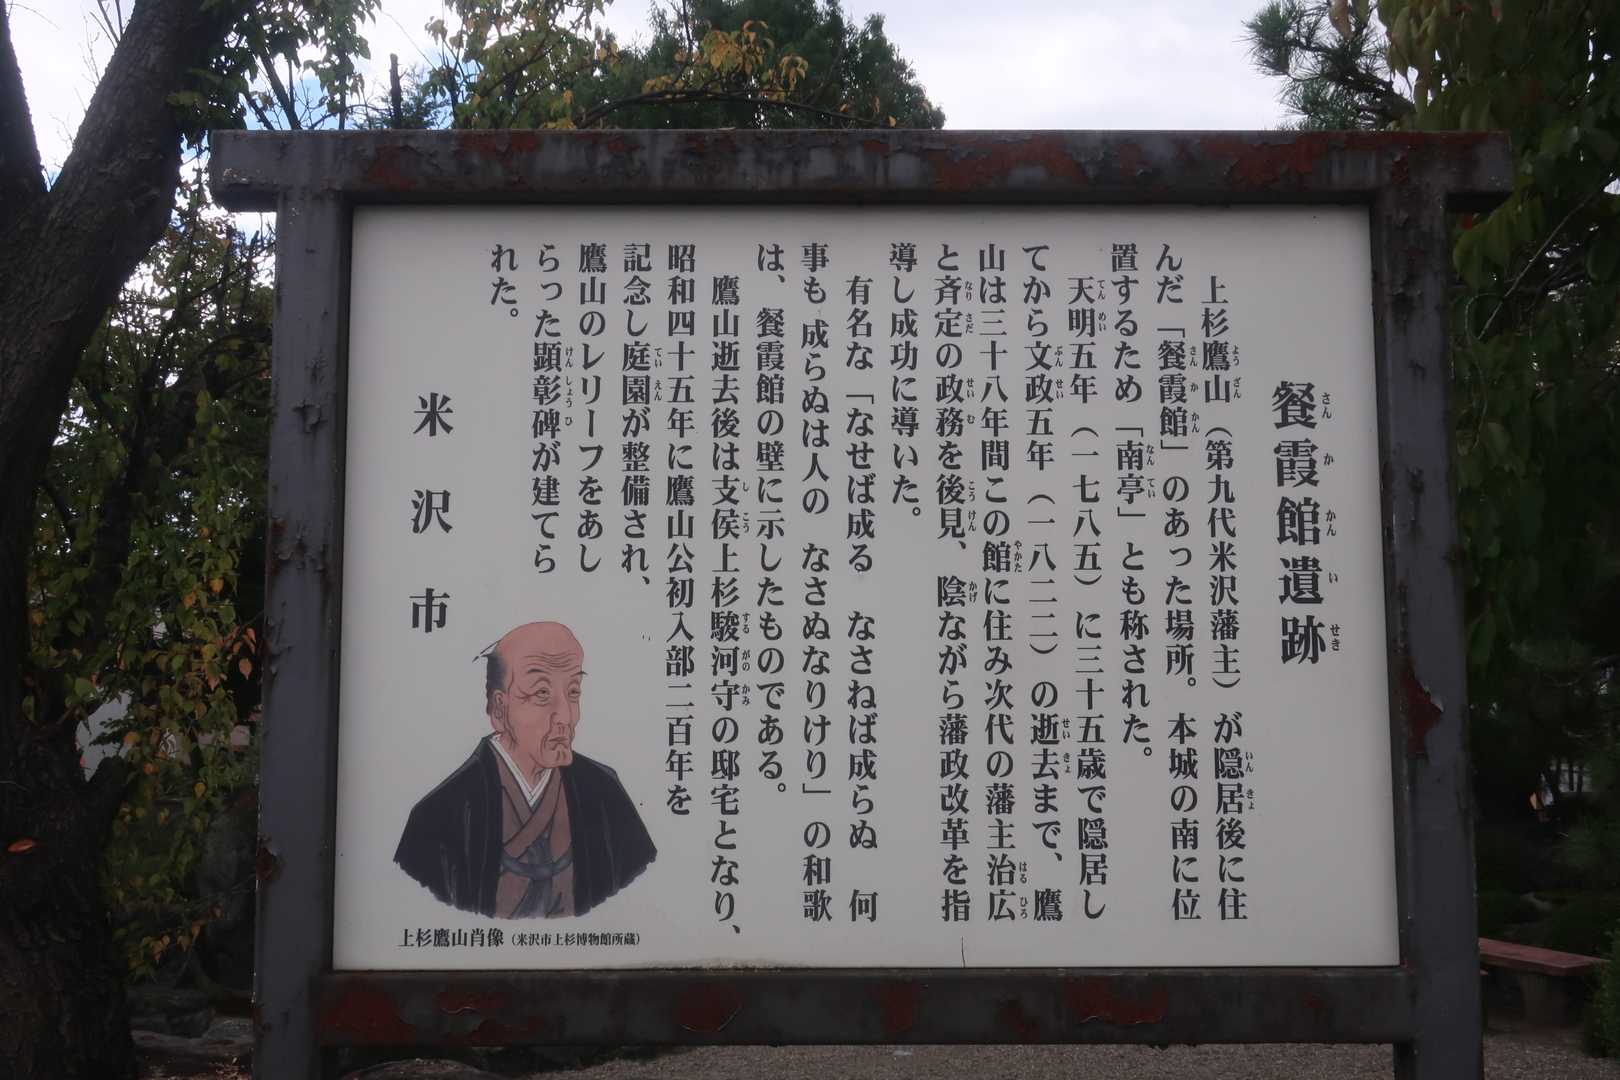 餐霞館遺跡
上杉鷹山（第九代米沢藩主）が隠居後に住
んだ「餐霞館」のあった場所。本城の南に位
置するため「南亭」とも称された。
天明五年（一七八五）に三十五歳で隠居し
てから文政五年（一八二二）の逝去まで、鷹
山は三十八年間この館に住み次代の藩主治広
と斉定の政務を後見、陰ながら藩政改革を指
導し成功に導いた。
有名な「なせば成る　なさねば成らぬ　何
事も　成らぬは人の　なさぬなりけり」の和歌
は、餐霞館の壁に示したものである。
鷹山逝去後は支侯上杉駿河守の邸宅となり、
昭和四十五年に鷹山公初入部二百年を
記念し庭園が整備され、
鷹山のレリーフをあし
らった顕彰碑が建てら
れた。
米沢市
上杉鷹山肖像（米沢市上杉博物館所蔵）